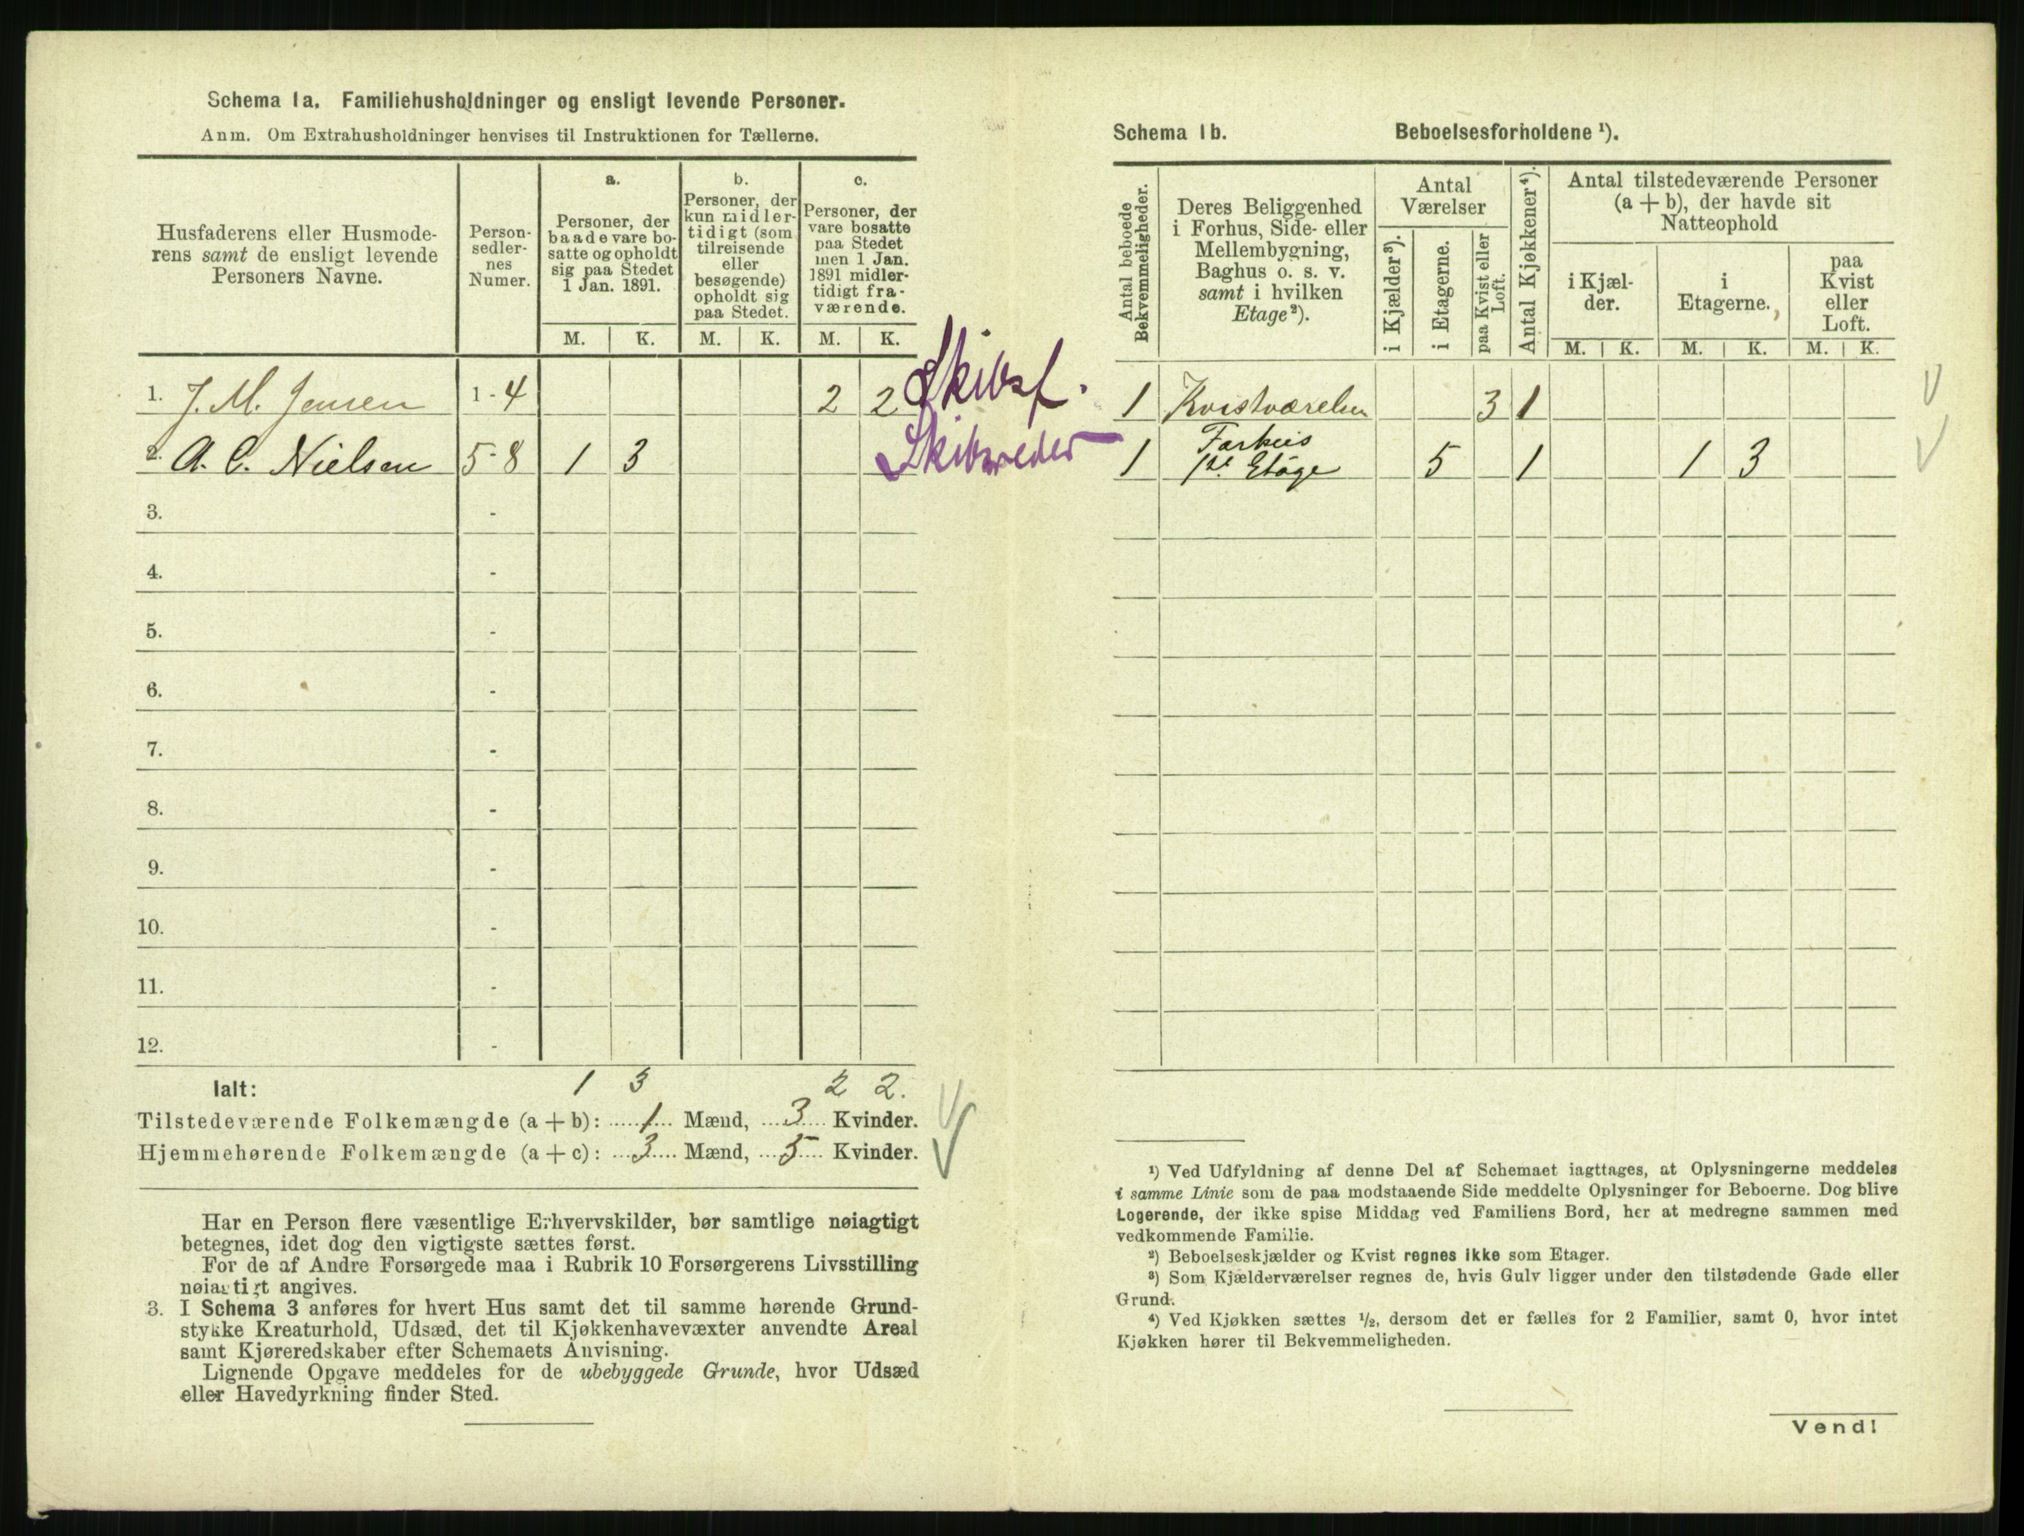 Schema 1a. Familiehusholdninger og ensligt levende Personer.
Anm. Om Extrahusholdninger henvises til Instruktionen for Tællerne.
Husfaderens eller Husmode-
rens samt de ensligt levende
Personers Navne.
Person-
sedler-
nes
Numer.
a.
Personer, der
baade vare bo-
satte og opholdt
sig paa Stedet
1 Jan. 1891.
b.
Personer, der
kun midler-
tidigt (som
tilreisende
eller
besøgende)
opholdt sig
paa Stedet.
c.
Personer, der
vare bosatte
paa Stedet
men 1 Jan.
1891 midler-
tidigt fra-
værende.
M. K. M. K. M. K.
1. J. M. Jensen 1-4 2 2 Skibsf.
2. A. C. Nielsen 5-8 1 3 Skibsreder
3. -
4. -
5. -
6. -
7. -
8. -
9. -
10. -
11. -
12. -
Ialt: 1 3 2 2.
Tilstedeværende Folkemængde (a + b): 1 Mænd, 3 Kvinder.
Hjemmehørende Folkemængde (a + c): 3 Mænd, 5 Kvinder.
Har en Person flere væsentlige Erhvervskilder, bør samtlige nøiagtigt
betegnes, idet dog den vigtigste sættes først.
For de af Andre Forsørgede maa i Rubrik 10 Forsørgerens Livsstilling
nøiagtigt angives.
3. I Schema 3 anføres for hvert Hus samt det til samme hørende Grund-
stykke Kreaturhold, Udsæd, det til Kjøkkenhavevæxter anvendte Areal
samt Kjøreredskaber efter Schemaets Anvisning.
Lignende Opgave meddeles for de ubebyggede Grunde, hvor Udsæd
eller Havedyrkning finder Sted.
Schema 1b. Beboelsesforholdene ¹).
Antal beboede
Bekvemmeligheder.
Deres Beliggenhed
i Forhus, Side- eller
Mellembygning,
Baghus o. s. v.
samt i hvilken
Etage²).
Antal
Værelser
i Kjælder³).
i Etagerne.
paa Kvist eller
Loft.
Antal Kjøkkener⁴).
Antal tilstedeværende Personer
(a + b), der havde sit
Natteophold
i Kjæl-
der.
i
Etagerne.
paa
Kvist
eller
Loft.
M. K. M. K. M. K.
1 Kvistværelser 3 1
1 Forhus
1ste Etage 5 1 1 3
¹) Ved Udfyldning af denne Del af Schemaet iagttages, at Oplysningerne meddeles
i samme Linie som de paa modstaaende Side meddelte Oplysninger for Beboerne. Dog blive
Logerende, der ikke spise Middag ved Familiens Bord, her at medregne sammen med
vedkommende Familie.
²) Beboelseskjælder og Kvist regnes ikke som Etager.
³) Som Kjælderværelser regnes de, hvis Gulv ligger under den tilstødende Gade eller
Grund.
⁴) Ved Kjøkken sættes ½, dersom det er fælles for 2 Familier, samt 0, hvor intet
Kjøkken hører til Bekvemmeligheden.
Vend!